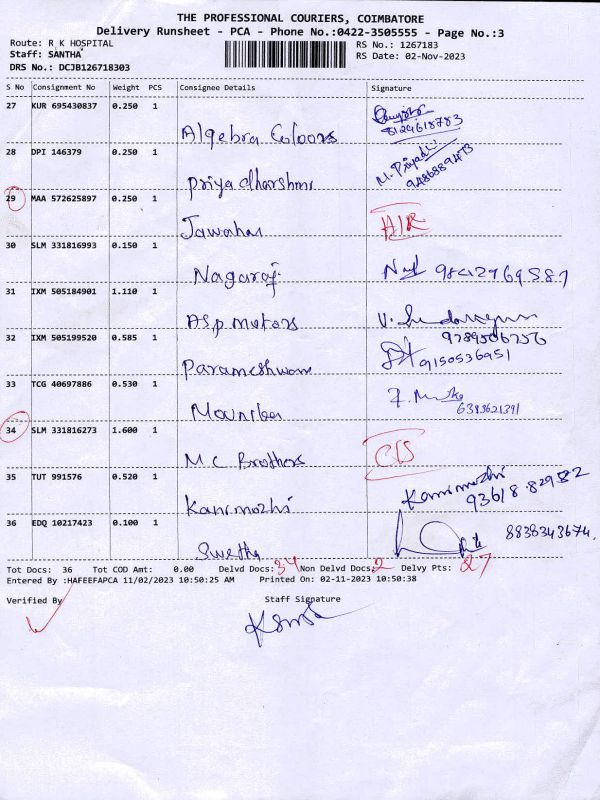 THE PROFESSIONAL COURIERS, COIMBATORE
Delivery Runsheet - PCA - Phone No.:0422-3505555 - Page No.:3
Route: R K HOSPITAL
RS No.: 1267183
Staff: SANTHA
RS Date: 02-Nov-2023
DRS No.: DCJB126718303
S No Consignment No Weight PCS Consignee Details Signature
27 KUR 695430837 0.250 1
Algebra Colours 8124618783
28 DPI 146379 0.250 1
Priyadharshini M. Priyadh 9486889473
29 MAA 572625897 0.250 1
Jawahar
30 SLM 331816993 0.150 1
Nagaraj 9842769587
31 IXM 505184901 1.110 1
Asp motors
32 IXM 505199520 0.585 1 9789506256
Parameshwari 9150536951
33 TCG 40697886 0.530 1
34 SLM 331816273 1.600 1
M C Brothers
35 TUT 991576 0.520 1
Kanimozhi Kanimozhi 93618 82952
36 EDQ 10217423 0.100 1
Swetha 8838343674.
Tot Docs: 36 Tot COD Amt: 0.00 Delvd Docs: 34 Non Delvd Docs: 2 Delvy Pts: 27
Entered By :HAFEEFAPCA 11/02/2023 10:50:25 AM Printed On: 02-11-2023 10:50:38
Verified By Staff Signature